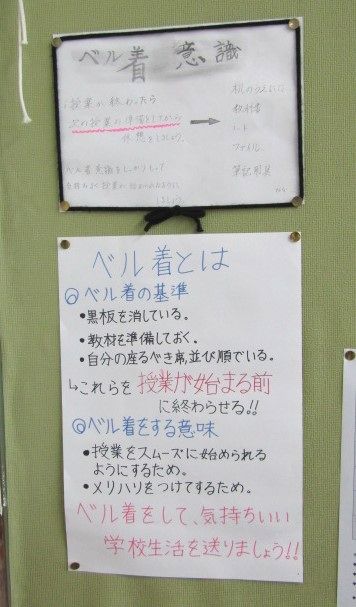 ベル着 意識
授業が終わったら
次の授業の準備をしてから
休憩をしましょう。
→
机のうえには
教科書
ノート
ファイル
筆記用具
ベル着意識をしっかりもって
しましょう
ベル着とは
◎ベル着の基準
•黒板を消している。
•教材を準備しておく。
•自分の座るべき席、並び順でいる。
↳これらを授業が始まる前
に終わらせる!!
◎ベル着をする意味
•授業をスムーズに始められる
ようにするため。
•メリハリをつけてするため。
ベル着をして、気持ちいい
学校生活を送りましょう!!